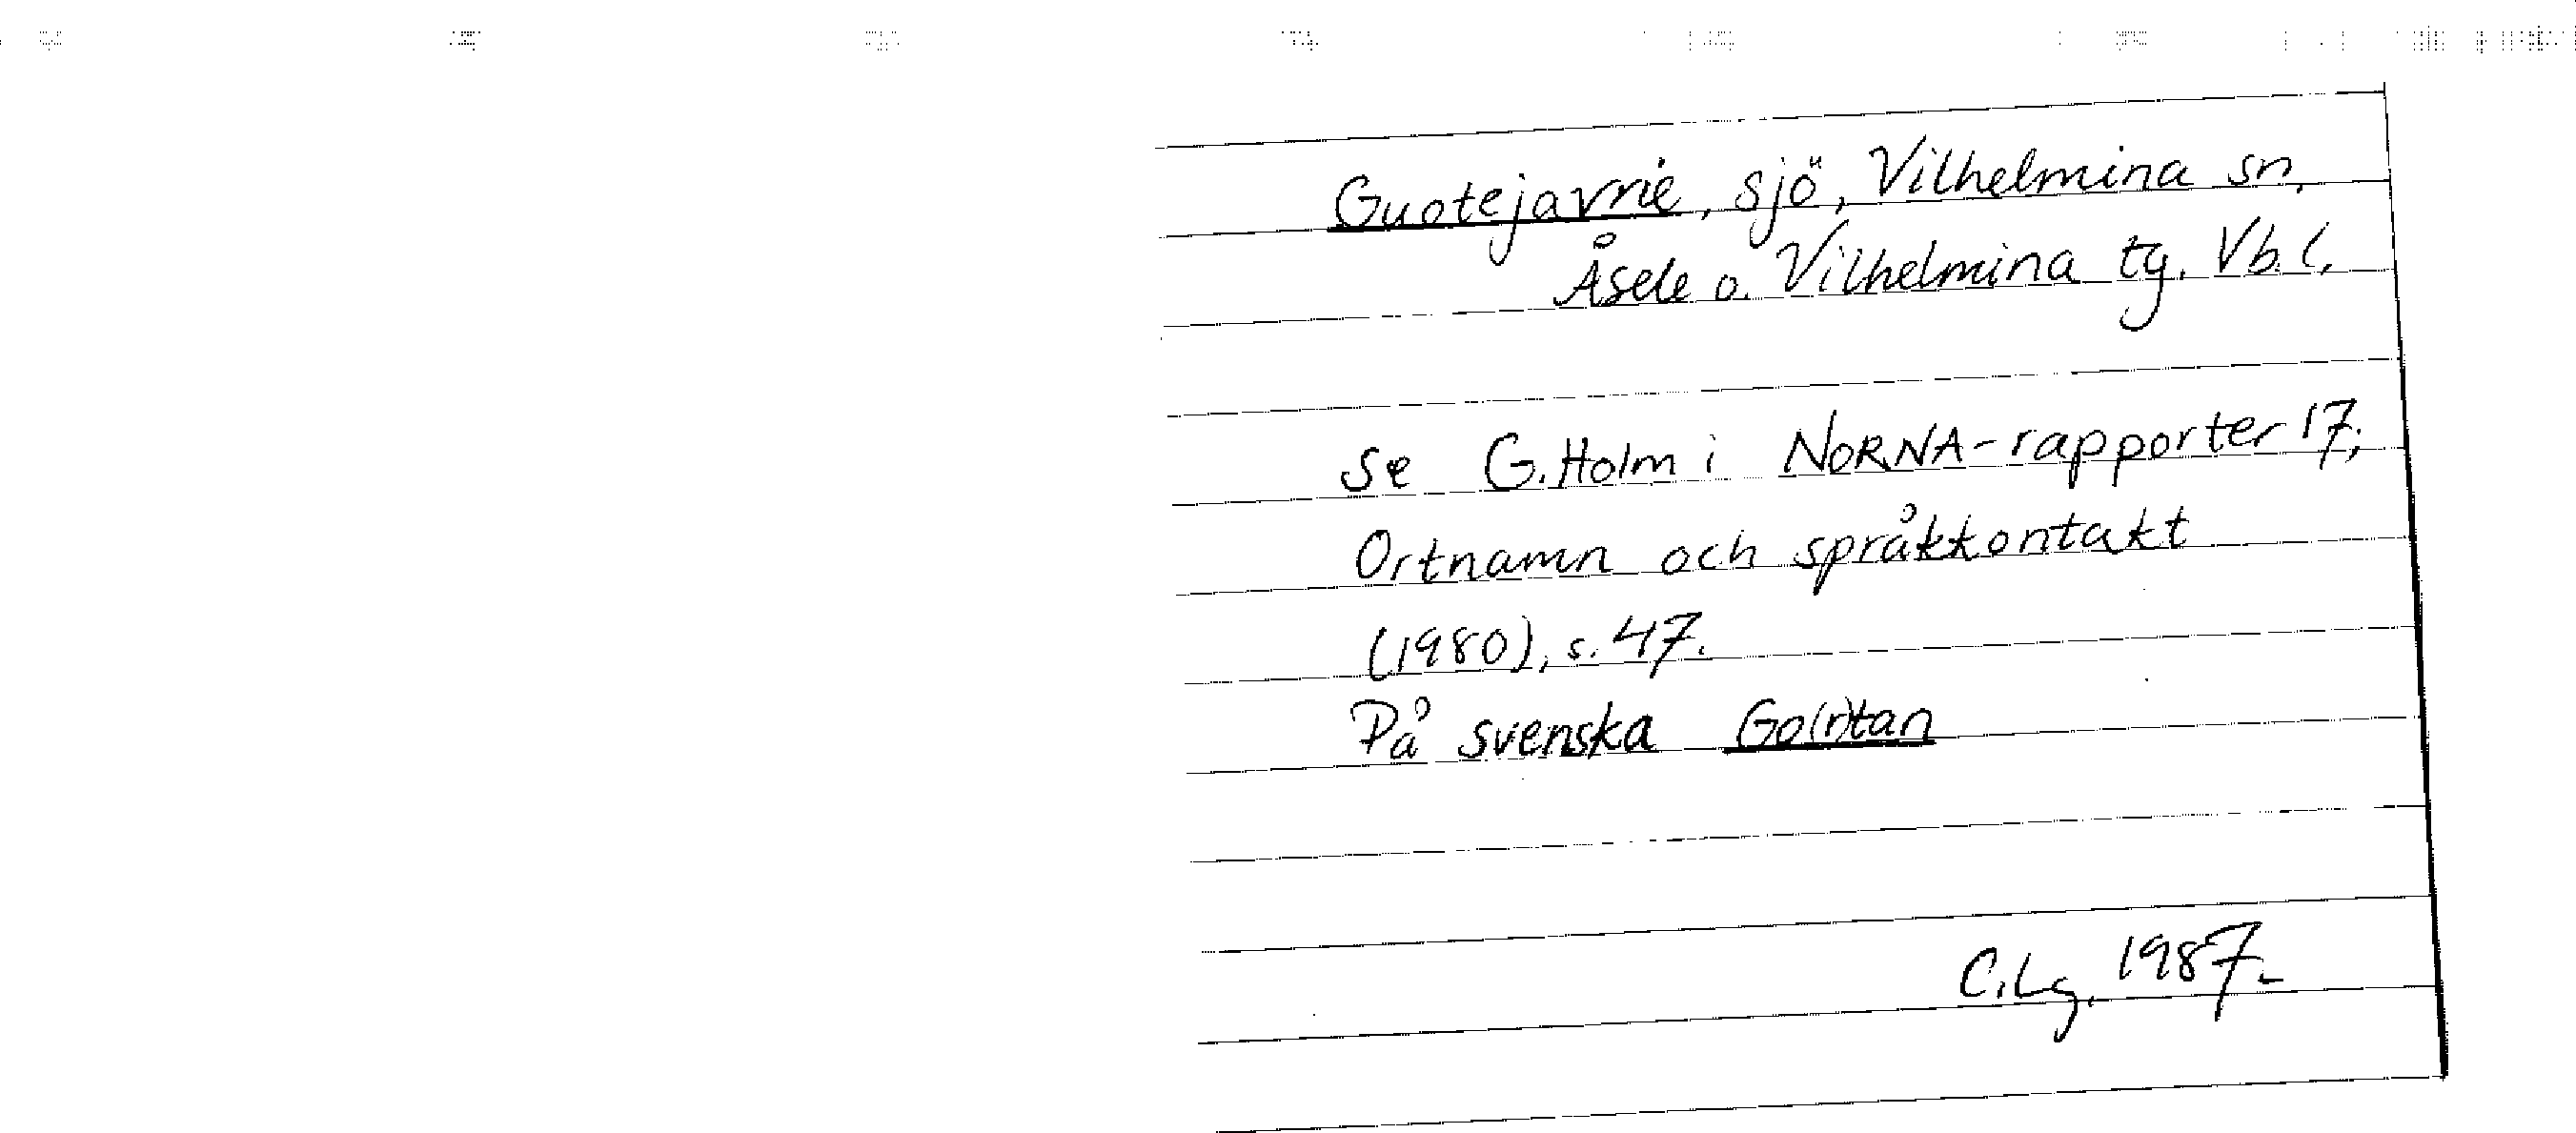 Guotejavrie, sjö, Vilhelmina sn,
Åsele o. Vilhelmina tg. Vb. l.
Se G. Holm i NORNA-rapporter 17;
Ortnamn och språkkontakt
(1980), s. 47.
På svenska Go(r)tan
C. Lg. 1987.